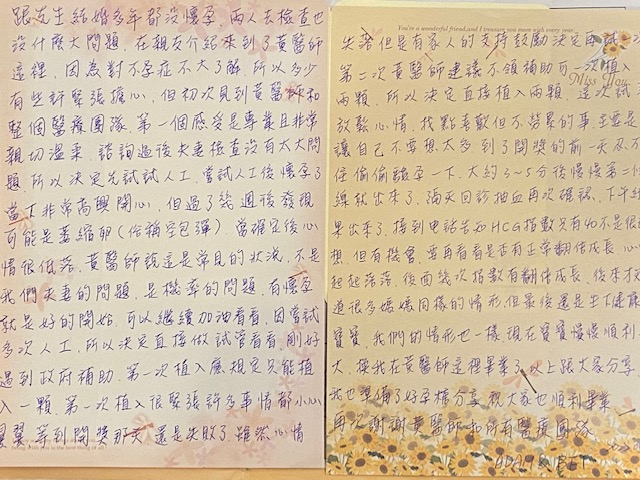 跟先生結婚多年都沒懷孕，兩人去檢查也
沒什麼大問題，在親友介紹來到了黃醫師
這裡，因為對不孕症不大了解，所以多少
有些許緊張擔心，但初次見到黃醫師和
整個醫療團隊，第一個感受是專業且非常
親切溫柔，諮詢過後夫妻檢查沒有太大問
題，所以決定先試試人工，嘗試人工後懷孕了
當下非常高興開心，但過了幾週後發現
可能是萎縮卵(俗稱空包彈)，當確定後心
情很低落，黃醫師說這是常見的狀況，不是
我們夫妻的問題，是機率的問題，有懷孕
就是好的開始，可以繼續加油看看，因嘗試
多次人工，所以決定直接做試管看看，剛好
遇到政府補助，第一次植入應規定只能植
入一顆，第一次植入很緊張許多事情都小心
翼翼，等到開獎那天，還是失敗了，雖然心情
You're a wonderful friend, and I treasure you more with every year.
Miss You
失落但是有家人的支持鼓勵決定再試
第二次黃醫師建議不領補助可一次植入
兩顆，所以決定直接植入兩顆，這次試
放鬆心情，找點喜歡但不勞累的事，主要是
讓自己不要想太多，到了開獎的前一天忍不
住偷偷驗孕一下，大約3~5分後慢慢第二
線就出來了，隔天回診抽血再次確認，下午
果出來了，接到電話告知HCG指數只有40不是很
想，但有機會，要再看看是否有正常翻倍成長，心
起起落落，後面幾次指數有翻倍成長，後來才
道很多媽媽同樣的情形，但最後還是生下健康
寶寶，我們的情形也一樣，現在寶寶慢慢順利
大，換我在黃醫師這裡畢業了，以上跟大家分享，
我也準備了好孕棉分享，祝大家也順利畢業
再次謝謝黃醫師和所有醫療團隊